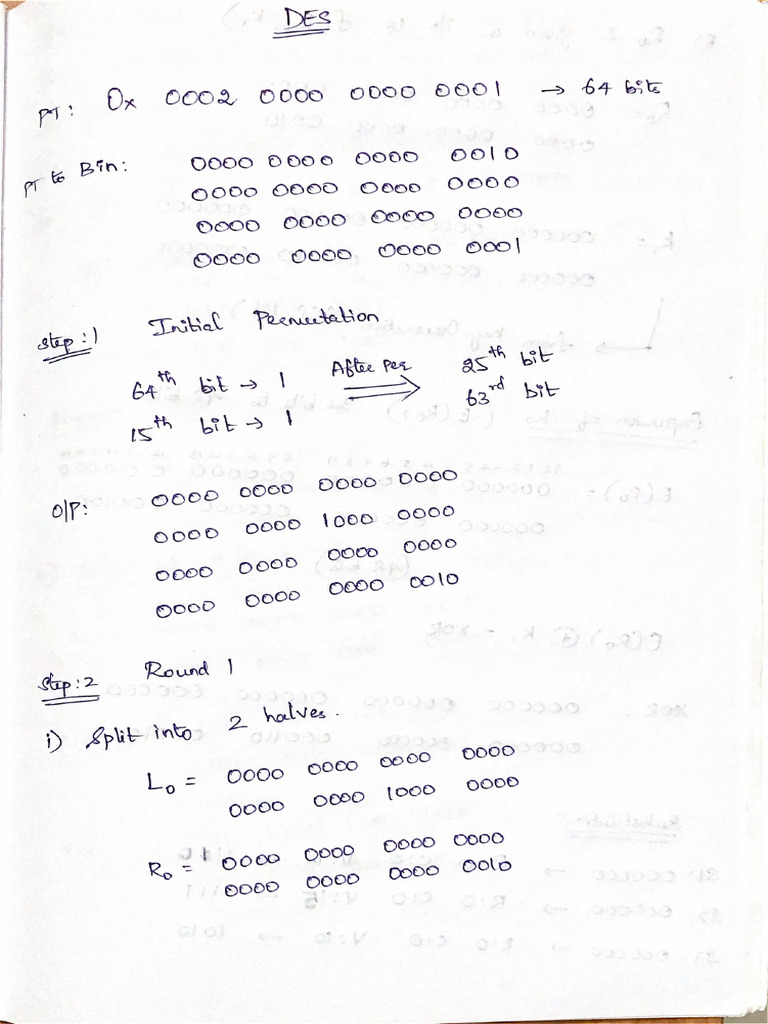 DES
PT: 0x 0002 0000 0000 0001 → 64 bit
PT to Bin: 0000 0000 0000 0010
0000 0000 0000 0000
0000 0000 0000 0000
0000 0000 0000 0001
Step:1 Initial Permutation
64th bit → 1 After Per 25th bit
15th bit → 1 63rd bit
O/P: 0000 0000 0000 0000
0000 0000 1000 0000
0000 0000 0000 0000
0000 0000 0000 0010
Step:2 Round 1
i) Split into 2 halves.
L0 = 0000 0000 0000 0000
0000 0000 1000 0000
R0 = 0000 0000 0000 0000
0000 0000 0000 0010